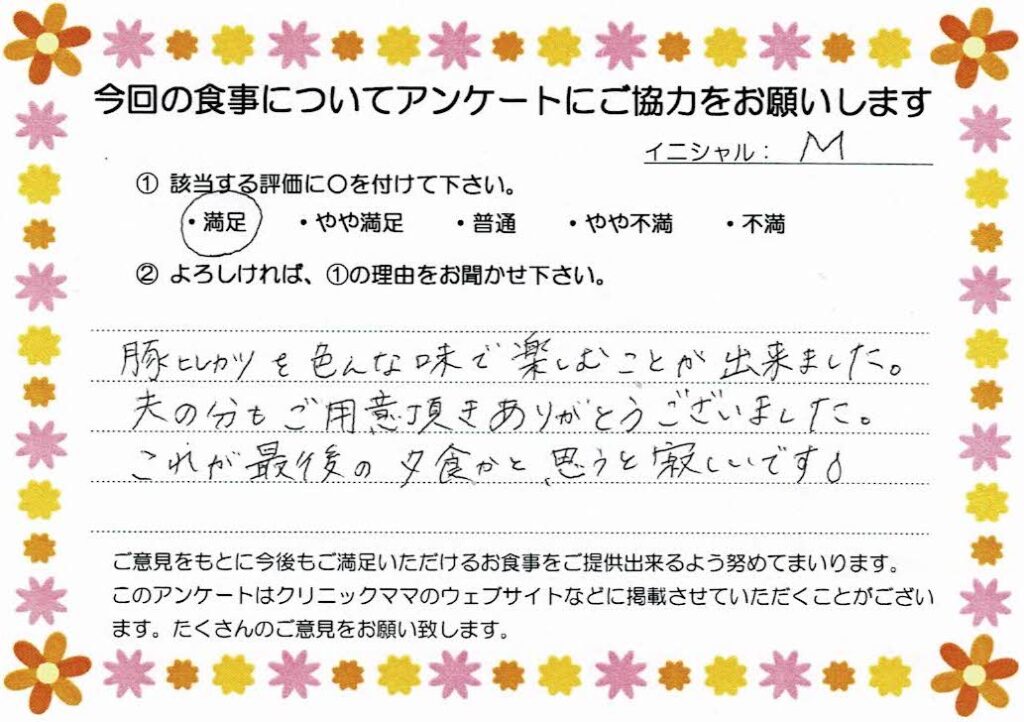 今回の食事についてアンケートにご協力をお願いします
イニシャル： M
① 該当する評価に〇を付けて下さい。
・満足 ・やや満足 ・普通 ・やや不満 ・不満
② よろしければ、①の理由をお聞かせ下さい。
豚ヒレカツを色んな味で楽しむことが出来ました。
夫の分もご用意頂きありがとうございました。
これが最後の夕食かと思うと寂しいです
ご意見をもとに今後もご満足いただけるお食事をご提供出来るよう努めてまいります。
このアンケートはクリニックママのウェブサイトなどに掲載させていただくことがござい
ます。たくさんのご意見をお願い致します。